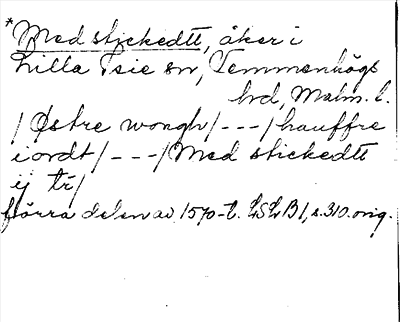 *Med stickedtt, åker i
Lilla Isie sn, Vemmenhögs
hd, Malm. l.
/Østre wongh/---/hauffre
iordt/---/Med stickedtt
ij tr/
förra delen av 1570-t. LSLB1, s.310. orig.